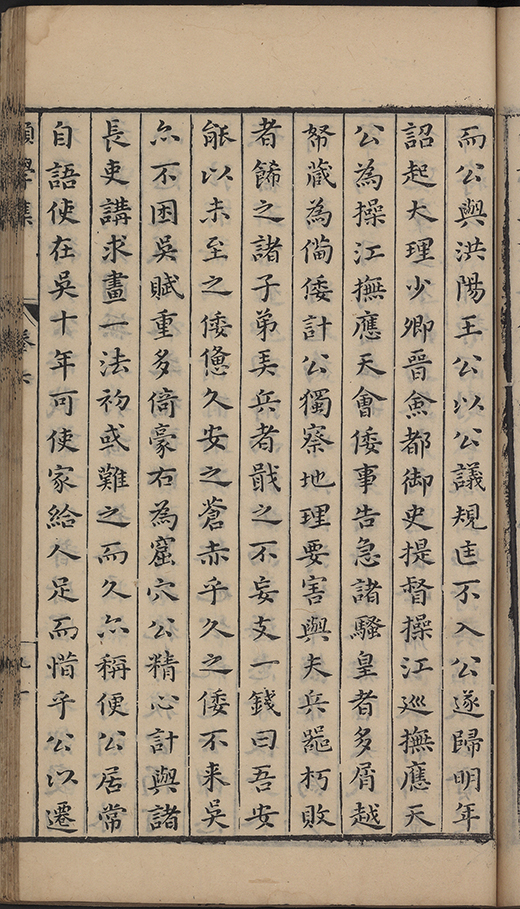 而公與洪陽王公以公議規匡不入公遂歸明年
詔起大理少卿晉僉都御史提督操江巡撫應天
公為操江撫應天會倭事告急諸騷皇者多屑越
帑藏為備倭計公獨察地理要害與夫兵噐朽敗
者餙之諸子弟弄兵者戢之不妄支一錢曰吾安
能以未至之倭憊久安之蒼赤乎久之倭不来吳
亦不困吳賦重多倚豪右為窟穴公精心計與諸
長吏講求畫一法初或難之而久亦稱便公居常
自語使在吳十年可使家給人足而惜乎公以遷
願學集
卷六